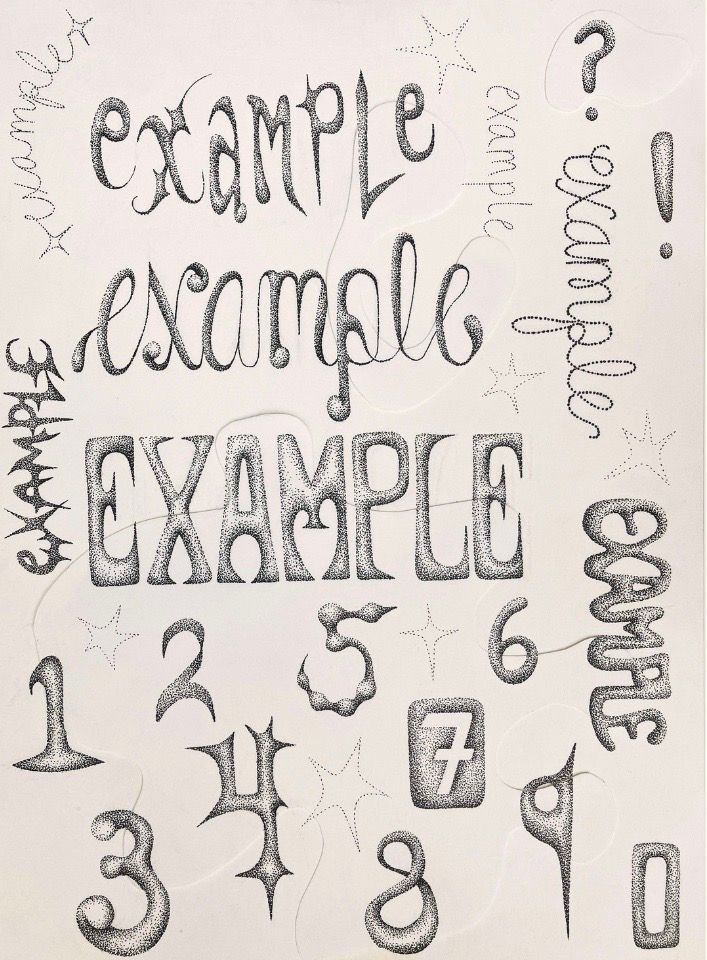 example
example
example
?
!
example
example
EXAMPLE
EXAMPLE
EXAMPLE
1
2
5
6
7
4
3
8
9
0